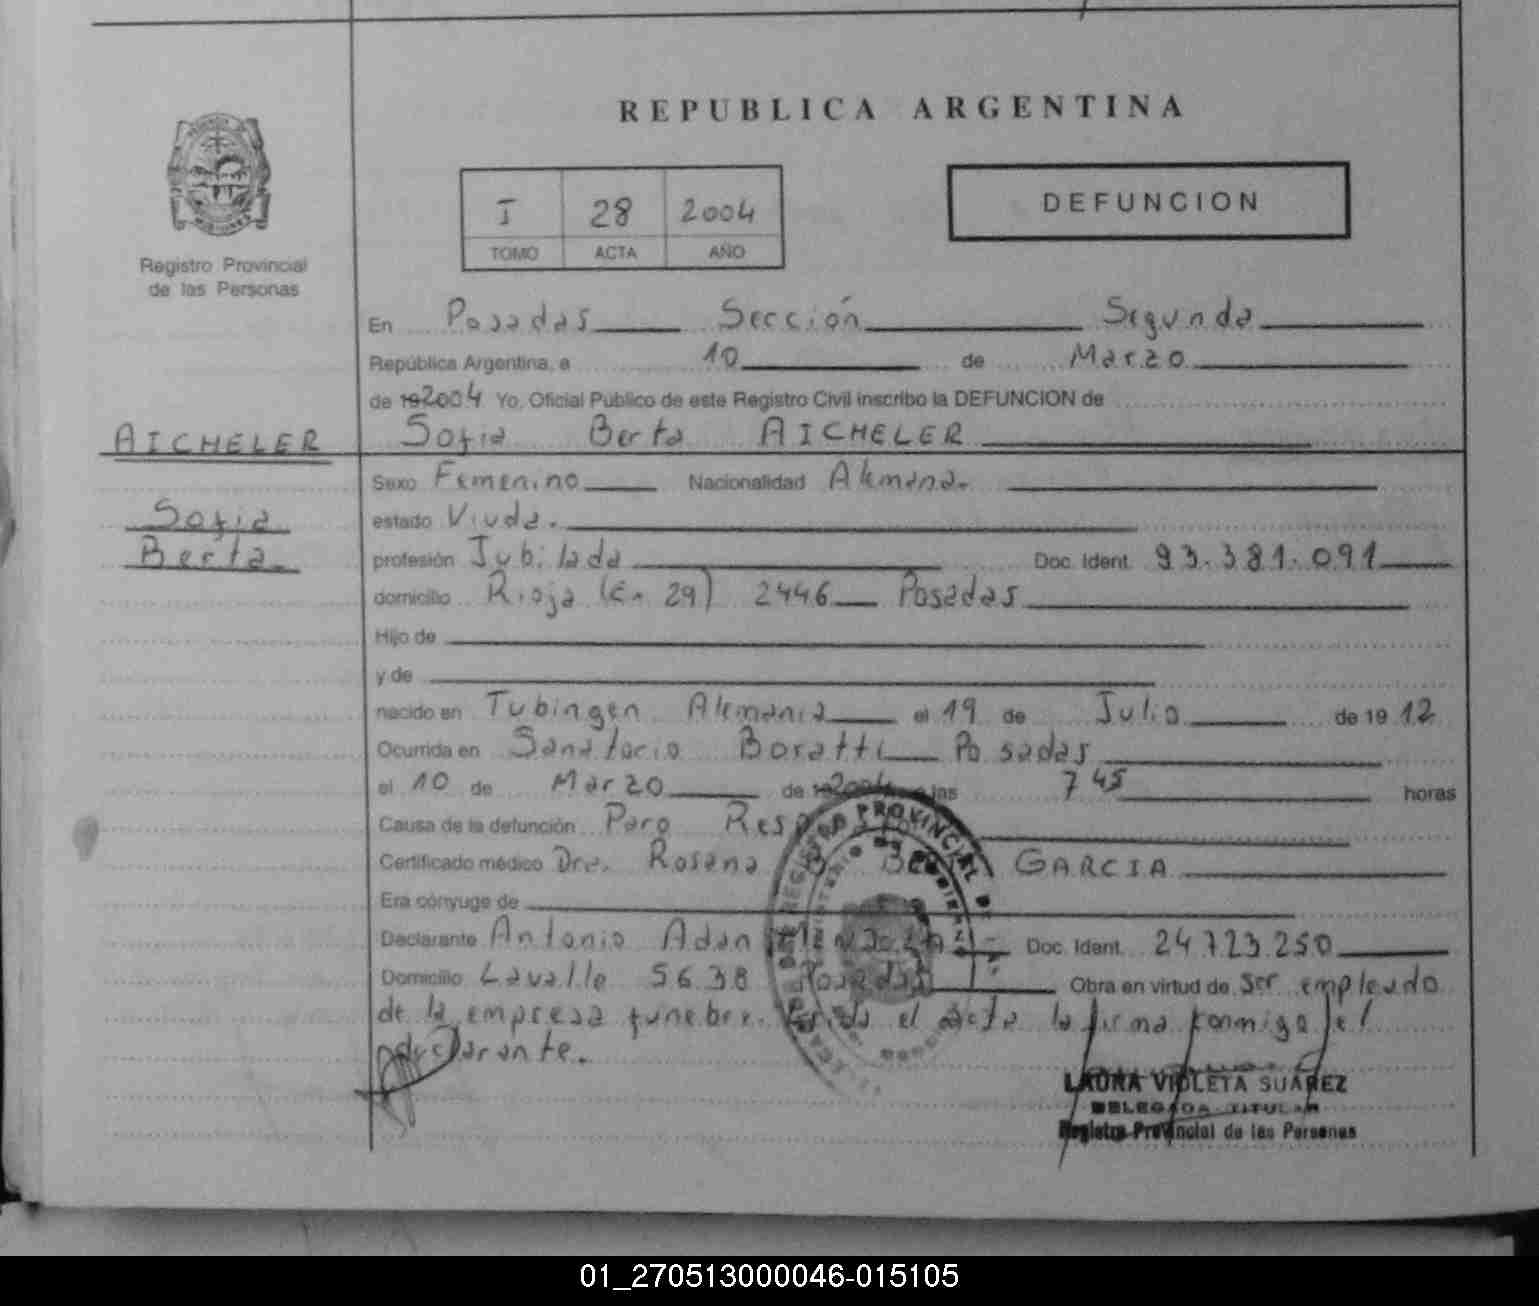 REPUBLICA ARGENTINA
I 28 2004
TOMO ACTA AÑO
DEFUNCION
Registro Provincial
de las Personas
En Posadas Sección Segunda
República Argentina, a 10 de Marzo
de 192004 Yo, Oficial Público de este Registro Civil inscribo la DEFUNCION de
AICHELER
Sofia Berta AICHELER
Sofia
Berta.
Sexo Femenino Nacionalidad Alemana.
estado Viuda.
profesión Jubilada Doc. Ident. 93.381.091
domicilio Rioja (Ex 29) 2446 Posadas
Hijo de
y de
nacido en Tubingen Alemania el 19 de Julio de 19 12
Ocurrida en Sanatorio Boratti Posadas
el 10 de Marzo de 192004 a las 7 45 horas
Causa de la defunción Paro
Certificado médico Dra. Rosana B. GARCIA
Era cónyuge de
Declarante Antonio Adan MENDOZA Doc. Ident. 24.723.250
Domicilio Lavalle 5638 Posadas Obra en virtud de ser empleado
de la empresa funebre. Leida el acta la firma conmigo el
declarante.
REGISTRO PROVINCIAL DE
LAURA VIOLETA SUAREZ
DELEGADA TITULAR
Registro Provincial de las Personas
01_270513000046-015105